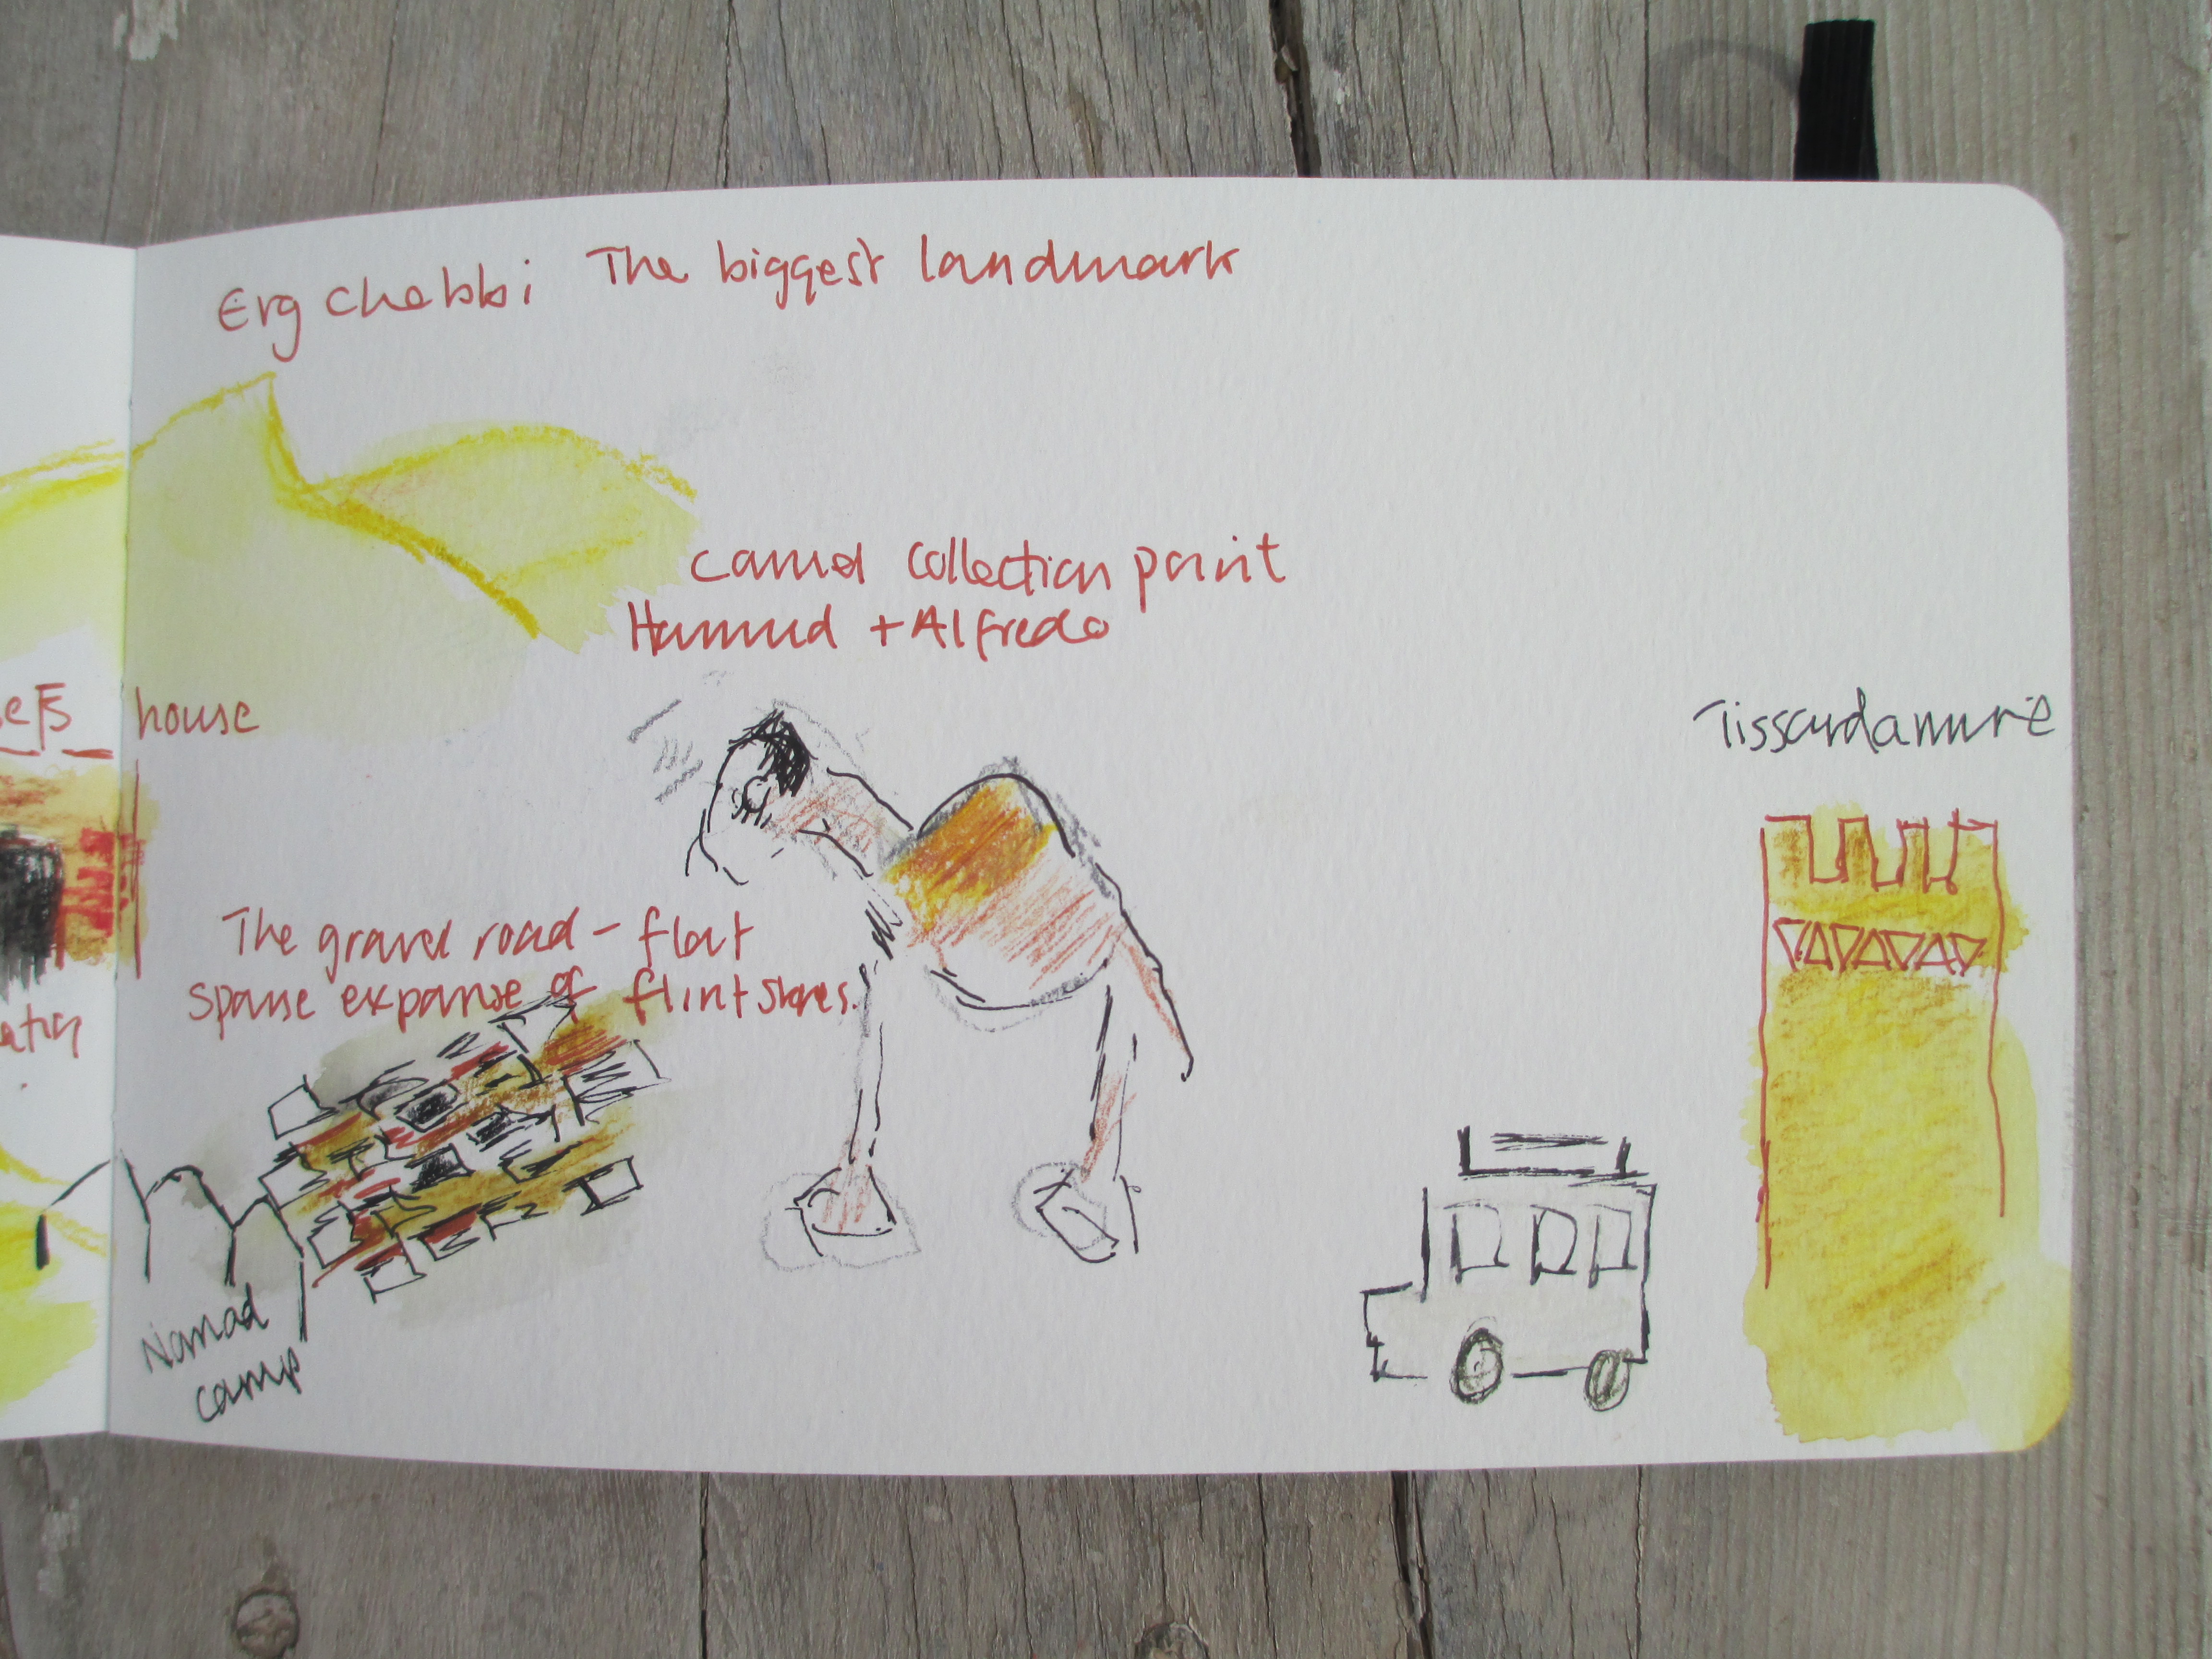 Erg Chebbi The biggest landmark
Camel Collection point
Hamud + Alfredo
house
Tissardamine
The gravel road – flat
sparse expanse of flint stones.
Nomad
camp